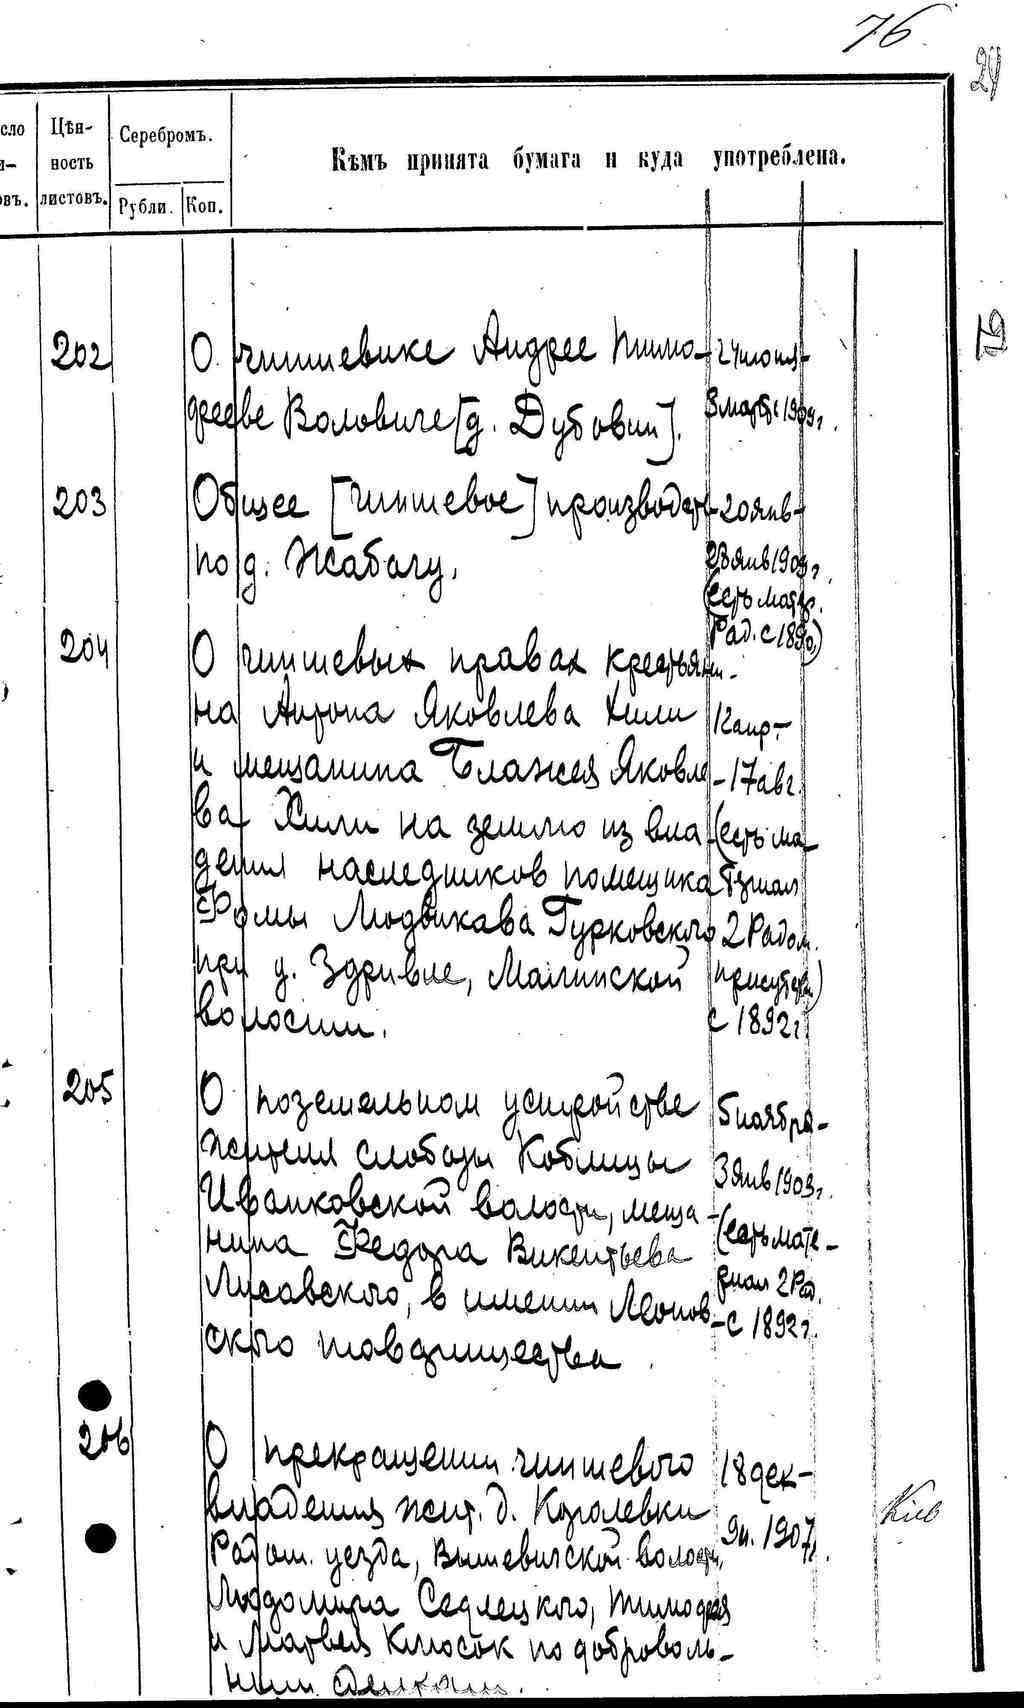 76
24
сло
Цѣн-
ность
листовъ.
Серебромъ.
Рубли.
Коп.
Кѣмъ принята бумага и куда употреблена.
202
О чиншевике Андрее Тимо-
фееве Воловиче [д. Дубовик].
24 июня-
3 марта 1909г.
203
Общее [чиншевое] производств
по д. Жабочу.
20 янв-
23 янв 1909г.
(есть матер.
Рад. с 1890)
204
О чиншевых правах крестьяни-
на Антона Яковлева Хили
и мещанина Блажея Яковле
ва Хили на землю из вла-
дения наследников помещика
Фомы Людвикава Гурковского
при д. Здривле, Малинской
волости.
12 апр-
-17 авг.
(есть ма-
териал
2 Радом.
присутств)
с 1892г.
205
О поземельном устройстве
жителя слободы Коблицы
Иванковской волости, меща-
нина Федора Викентьева
Лисавского, в имении Леонов-
ского товарищества
5 ноября-
3 янв 1903г.
(есть мате-
риал 2 Рад.
с 1892г.
206
О прекращении чиншевого
владения жит. д. Королевки
Радом. уезда, Вышевичской волости,
Людомира Седлецкого, Тимофея
и Матвея Клюсок по доброволь-
ным
18 дек-
9и. 1907г.
Кив